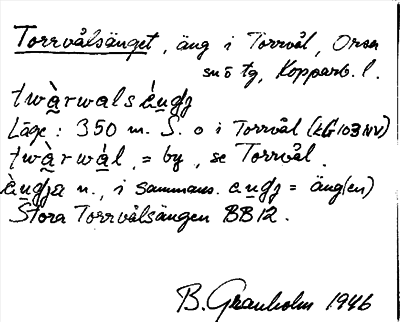 Torrvålsänget, äng i Torrvål, Orsa
snö tg, Kopparb. l.
twàrwalsèngɉ
Läge: 350 m. S. o i Torrvål (kG103NV)
twàrwàl, = by, se Torrvål.
èngɉa n., i sammans. engɉ = äng(en)
Stora Torrvålsängen BB12.
B. Granholm 1946